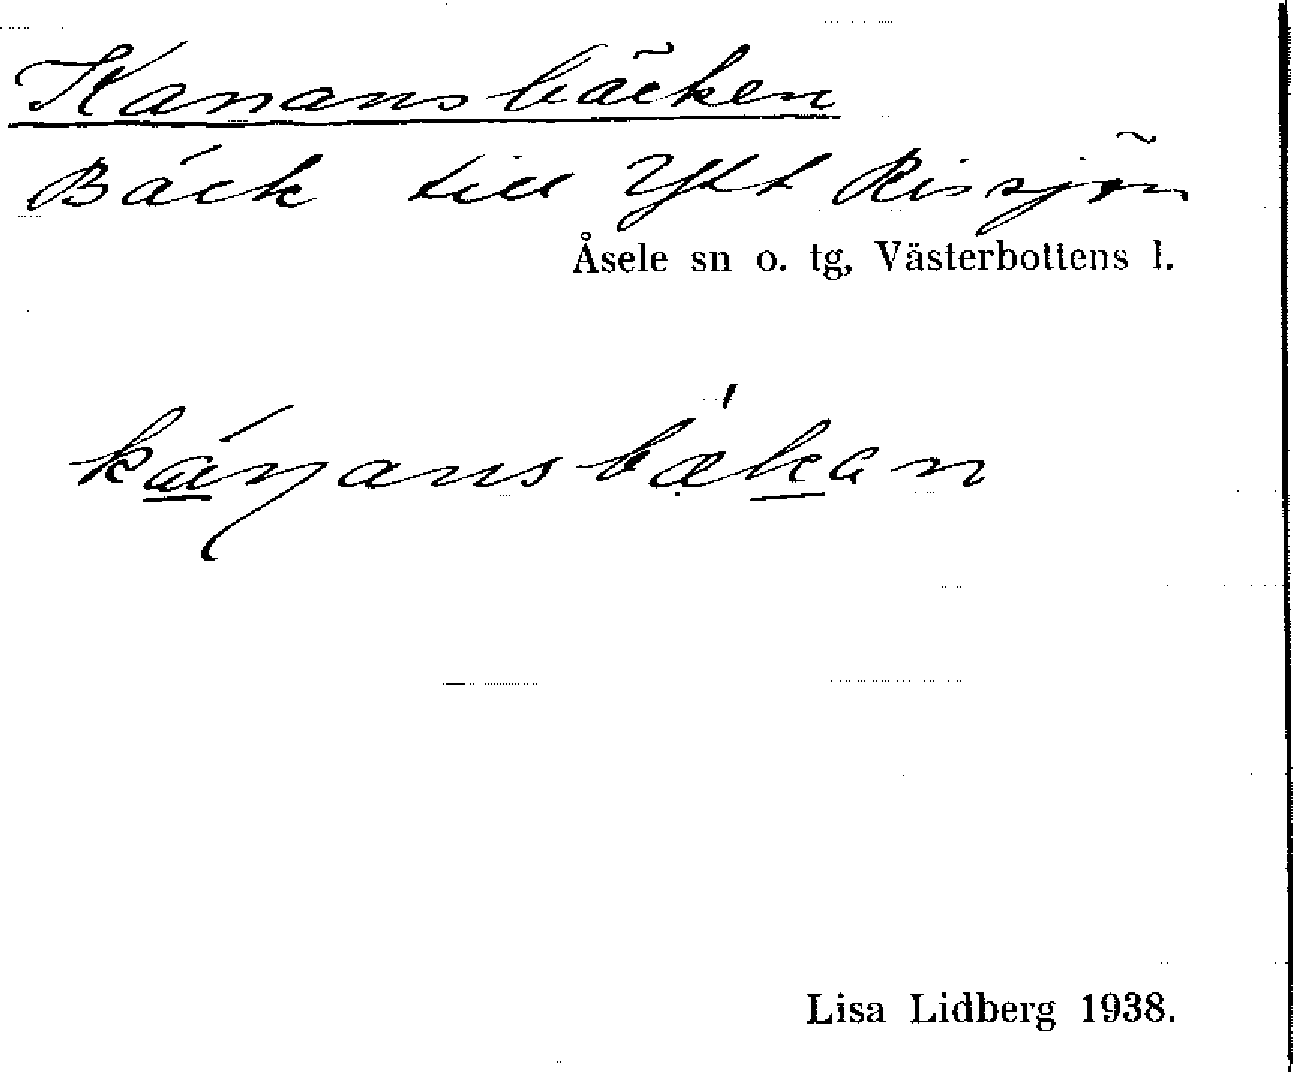 Kanansbäcken
Bäck till Ytt Rissjön
Åsele sn o. tg, Västerbottens l.
Lisa Lidberg 1938.